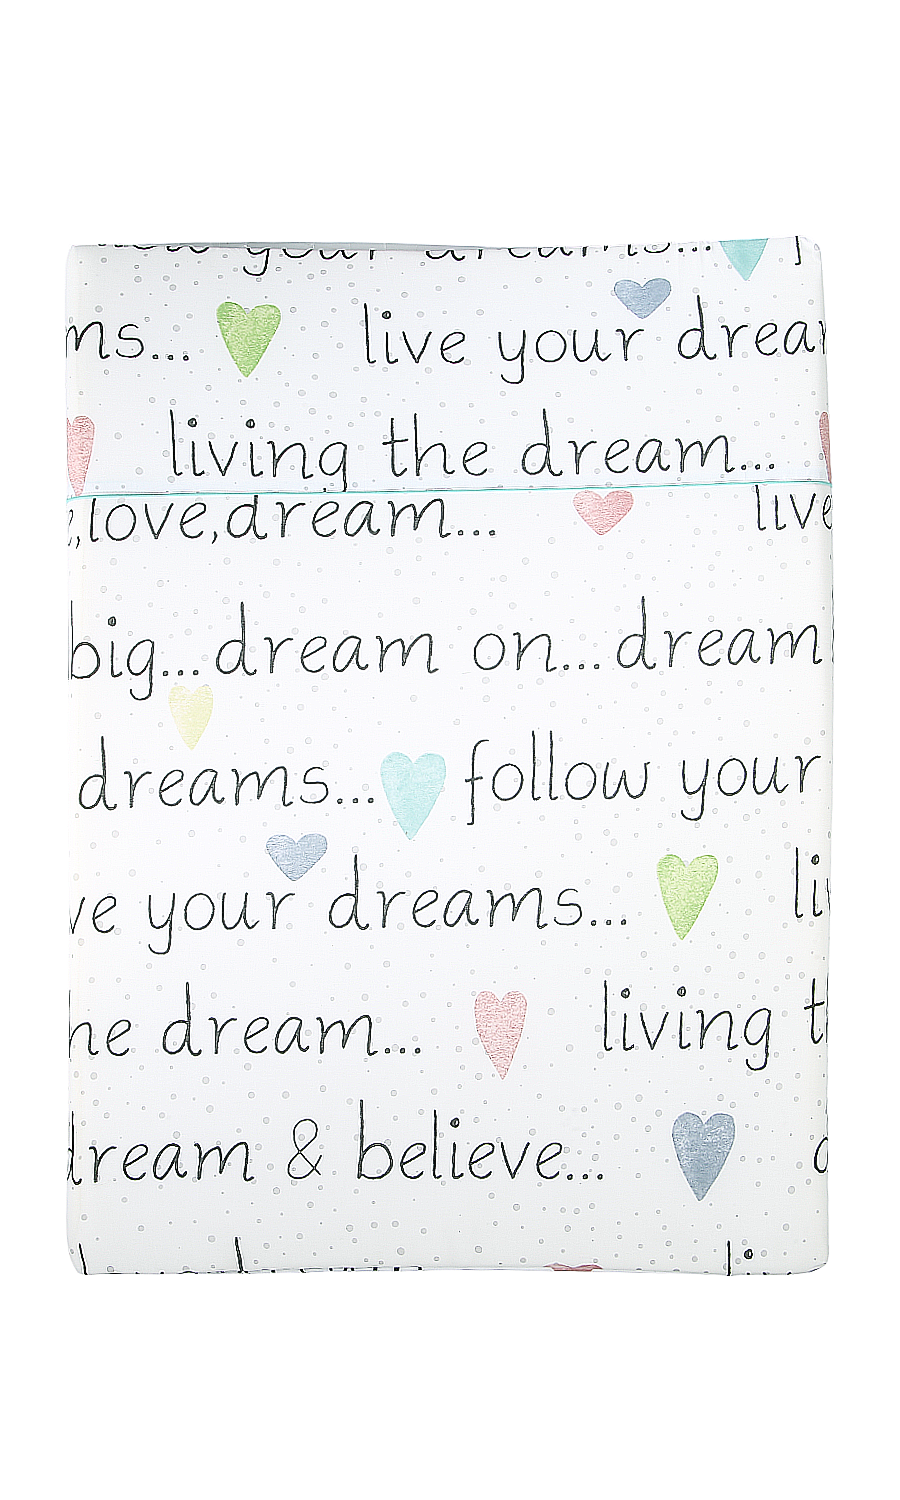 your dreams...
ms... live your drea
living the dream...
e,love,dream... live
big...dream on...dream
dreams... follow your
ve your dreams... li
he dream... living t
dream & believe... d